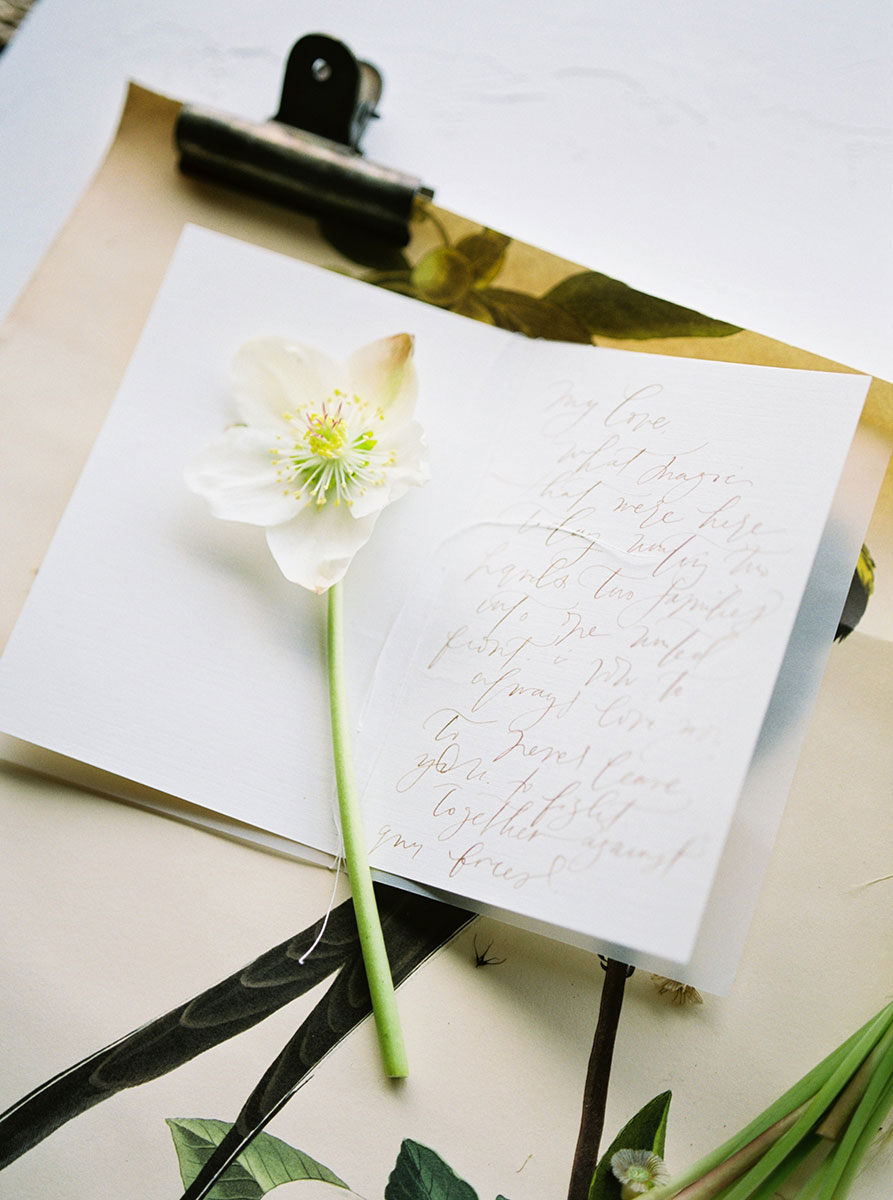 My love,
what magic
that were here
today uniting two
hands, two families
into one united
front. i vow to
always love you
to never leave
you. to fight
together against
any forces.